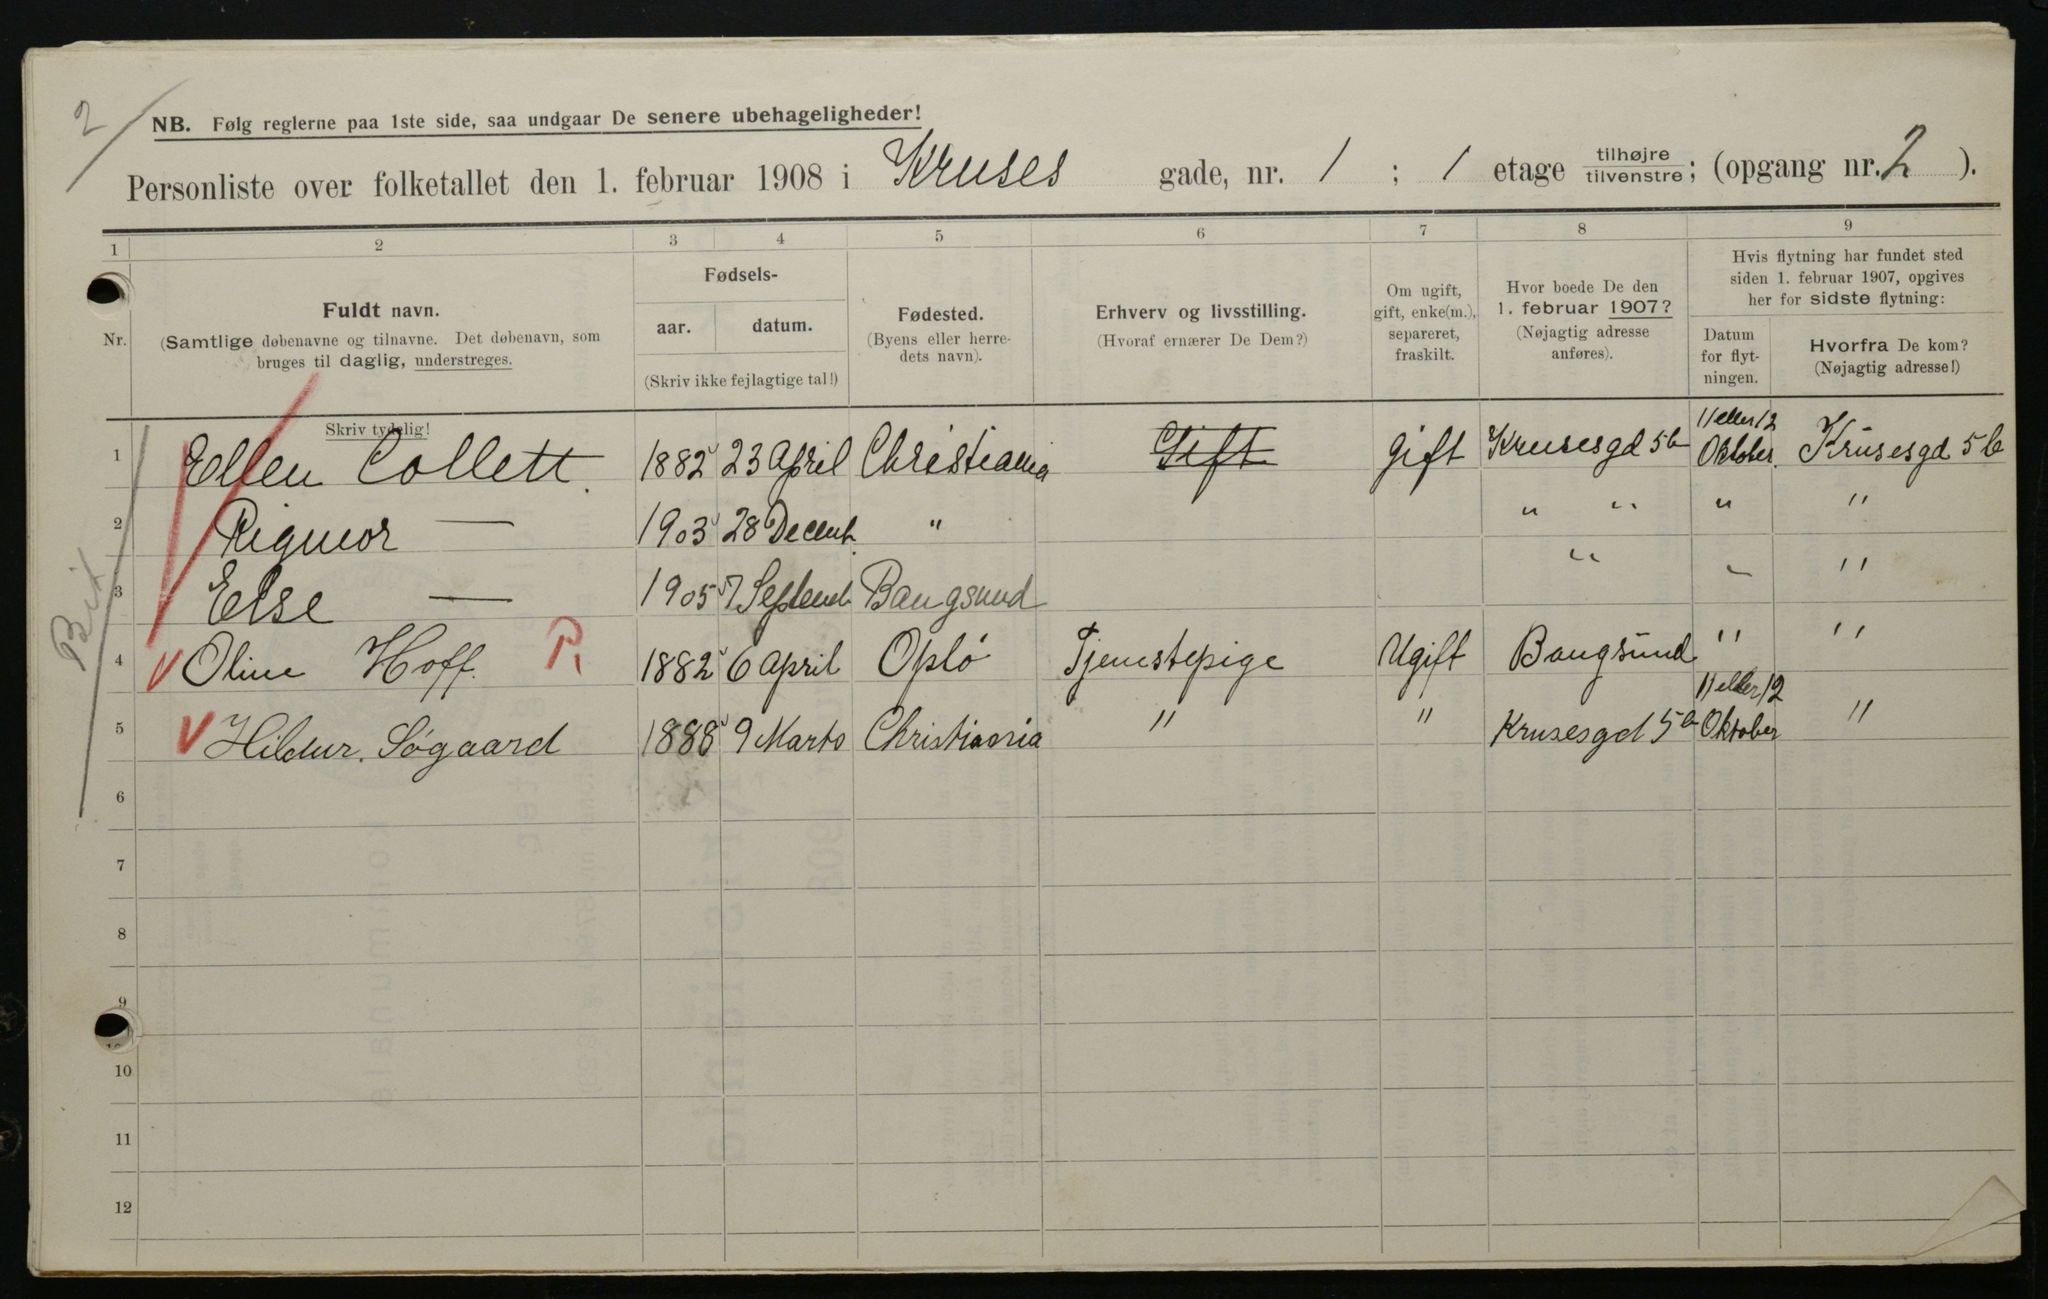 2
NB. Følg reglerne paa 1ste side, saa undgaar De senere ubehageligheder!
Personliste over folketallet den 1. februar 1908 i Kruses gade, nr. 1 ; 1 etage tilhøjre tilvenstre; (opgang nr. 2 ).
1 2 3 4 5 6 7 8 9
Nr.
Fuldt navn.
(Samtlige døbenavne og tilnavne. Det døbenavn, som
bruges til daglig, understreges.
Skriv tydelig!
Fødsels-
aar. datum.
(Skriv ikke fejlagtige tal!)
Fødested.
(Byens eller herre-
dets navn).
Erhverv og livsstilling.
(Hvoraf ernærer De Dem?)
Om ugift,
gift, enke(m.),
separeret,
fraskilt.
Hvor boede De den
1. februar 1907?
(Nøjagtig adresse
anføres).
Hvis flytning har fundet sted
siden 1. februar 1907, opgives
her for sidste flytning:
Datum
for flyt-
ningen.
Hvorfra De kom?
(Nøjagtig adresse!)
1 Ellen Collett. 1882 23 April Christiania Gift Gift Krusesgd 5b 11 eller 12 Oktober. Krusesgd 5b
2 Rigmor — 1903 28 Decemb. " " " " "
3 Else — 1905 7 Septemb Bangsund " " "
4 Oline Hoff. P. 1882 6 April Opló Tjenestepige Ugift Bangsund " "
5 Hildur. Søgaard 1888 9 Marts Christiania " " Krusesgd 5b 11 eller 12 Oktober "
6
7
8
9
10
11
12